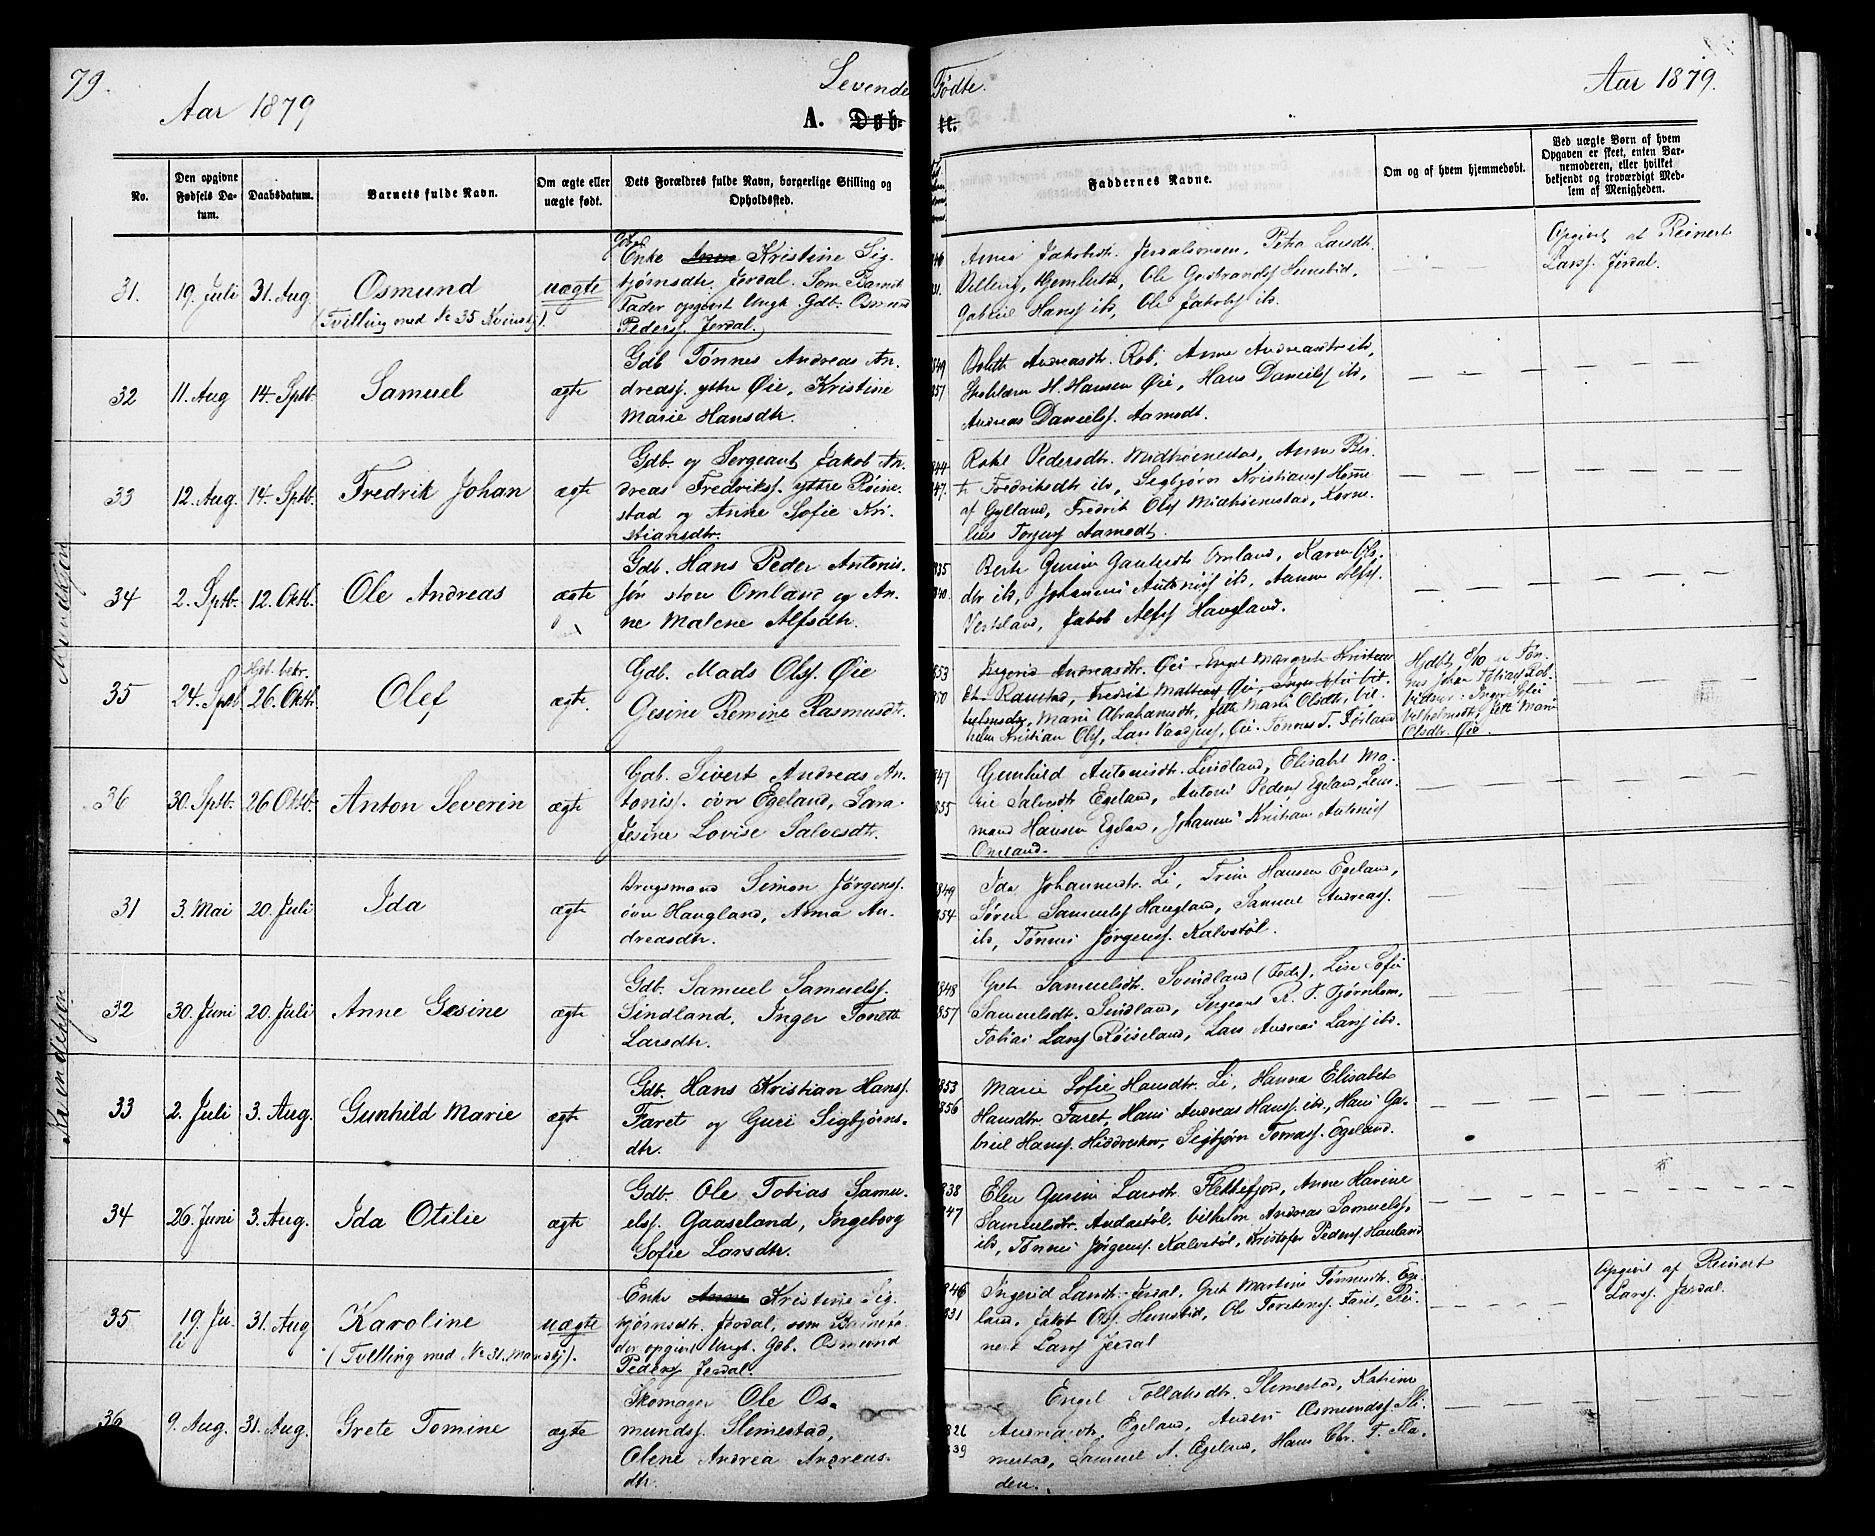 79.
Aar 1879
Levende Fødte.
Aar 1879.
A. Døb-te.
No.
Den opgivne Fødsels Da-tum.
Daabsdatum.
Barnets fulde Navn.
Om ægte eller uægte født.
Dets Forældres fulde Navn, borgerlige Stilling og Opholdssted.
Faddernes Navne.
Om og af hvem hjemmedøbt.
Ved uægte Børn af hvem Opgaven er skeet, enten Bar-nemoderen, eller hvilket bekjendt og troværdigt Med-lem af Menigheden.
Mandkjøn
31. 19. Juli 31. Aug Osmund uægte
(Tvilling med No 35 Kvindkj).
Enke Anne Kristine Sig-
bjørnsdtr. Jerdal. Som Barnets
Fader opgivet Ungk. Gdb. Osmund
Pedersf. Jerdal.
Anne Jakobsdtr. Petra Larsdtr.
Ole Gudbrandsf Hunsbid,
Gabriel Hansf ib, Ole Jakobsf ib.
Opgivet af Reinert
Larsf. Jerdal.
32 11. Aug 14. Sptb. Samuel ægte
Gdb Tønnes Andreas An-
dreasf. ytre Øie, Kristine
Marie Hansdtr.
1849
1857
Andreasdtr. Rob, Anne Andreasdtr ib,
H. Hansen Øie, Hans Danielsf ib,
Andreas Danielsf. Aamodt.
33 12. Aug. 14. Sptb. Fredrik Johan ægte
Gdb. og Sergeant Jakob An-
dreas Fredriksf. ytre Røine-
stad og Anne Sofie Kri-
stiansdtr.
1844
1847.
Rakel Pedersdtr. Midtrøinestad, Anne Ber-
te Fredriksdtr ib, Sigbjørn Kristiansf Homme
af Gylland, Fredrik Olsf Midtrøinestad, Korne-
lius Torjusf Aamodt.
34 2. Sptb. 12. Oktb. Ole Andreas ægte
Gdb. Hans Peder Antonis-
søn store Omland og An-
ne Malene Alfsdtr.
1835
1840.
Berte Gurine Gautesdtr Omland, Karen Ols-
dtr ib, Johannes Antonisf ib, Aanen Alfsf.
Vestsland, Jakob Alfsf Haugland.
35 24. Sptb. Hjd. bekr. 26. Oktb. Olef ægte.
Gdb. Mads Olsf. Øie
Gesine Remine Rasmusdtr.
1853
1850
Ingerid Andreasdtr. Øie. Engel Margrete Kristens-
dt. Raustad, Fredrik Matteusf Øie, Inger Elie Vil-
helmsdtr, Marie Abrahamsdtr, Jette Marie Olsdtr, Vil-
helm Kristian Olsf, Lars Vaadjesf, Øie. Tønnes T. Førland
Hjdbt. 8/10 af Tøn-
nes Johan Tobiasf Rob.
Vidner: Inger Elie
Vilhelmsdtr, Jette Marie
Olsdtr. Øie.
36 30. Sptb. 26 Oktb. Anton Severin ægte
Gdb. Sivert Andreas An-
tonisf. øvre Egeland, Sara
Jesine Lovise Salvesdtr.
1847
1855
Gunhild Antonisdtr. Lindland, Elisabet Ma-
rie Salvesdtr Egeland, Antonis Pedersf Egeland, Leu-
mand Hansen Egeland, Johannes Kristian Antonisf
Omland.
Kvindekjøn
31 3. Mai 20. Juli Ida ægte
Brugsmand Simon Jørgensf.
øvre Haugland, Anna An-
dreasdtr.
1849
1854.
Ida Johannesdtr. Li, Trine Hansen Egeland,
Søren Samuelsf Haugland, Samuel Andreasf.
ib, Tønnes Jørgensf. Kalvstøl.
32 30. Juni 20. Juli Anne Gesine ægte
Gdb. Samuel Samuelsf.
Sindland, Inger Tonette
Larsdtr.
1848
1857
Gret. Samuelsdtr. Svindland (Feda), Lise Sofie
Samuelsdtr. Sindland, Sergeant R. T. Bjørnhom,
Tobias Larsf Røiseland, Lars Andreas Larsf ib.
33 2. Juli 3. Aug. Gunhild Marie ægte
Gdb. Hans Kristian Hansf.
Faret og Guri Sigbjørns-
dtr.
1853
1856
Marie Sofie Hansdtr. Li, Hanna Elisabet
Hansdtr. Faret, Hans Andreas Hansf. ib., Hans Ga-
briel Hansf. Hiddreskov, Sigbjørn Tomasf. Egeland.
34 26. Juni 3. Aug. Ida Otilie ægte
Gdb. Ole Tobias Samu-
elsf. Gaaseland, Ingeborg
Sofie Larsdtr.
1838
1847
Elen Gurine Larsdtr. Flekkefjord, Anne Harine
Samuelsdtr. Andastøl. Vilhelm Andreas Samuelsf.
ib, Tønnes Jørgensf. Kalvstøl, Kristofer Pedersf. Hauland
35 19. Ju-
li 31. Aug Karoline uægte
(Tvilling med No 31. Mandkj).
Enke Anne Kristine Sig-
bjørnsdtr. Jerdal, som Barnefa-
der opgivet Ungk. Gdb. Osmund
Pedersf Jerdal.
1846
1831
Ingerid Larsdtr. Jerdal, Gret Martine Tønnesdtr. Ege-
land, Jakob Olsf. Hunsbid, Ole Torstensf. Faret, Rei-
nert Larsf Jerdal
Opgivet af Reinert
Larsf. Jerdal.
36 9. Aug. 31. Aug. Grete Tomine ægte
Skomager Ole Os-
mundsf. Slimestad,
Olene Andrea Andreas-
dtr.
1826
1839
Engel Tollaksdtr. Slimestad, Katrine
Andreasdtr. Egeland, Anders Osmundsf. Sli-
mestad, Samuel A. Egeland, Hans Chr. T. Fla-
den.